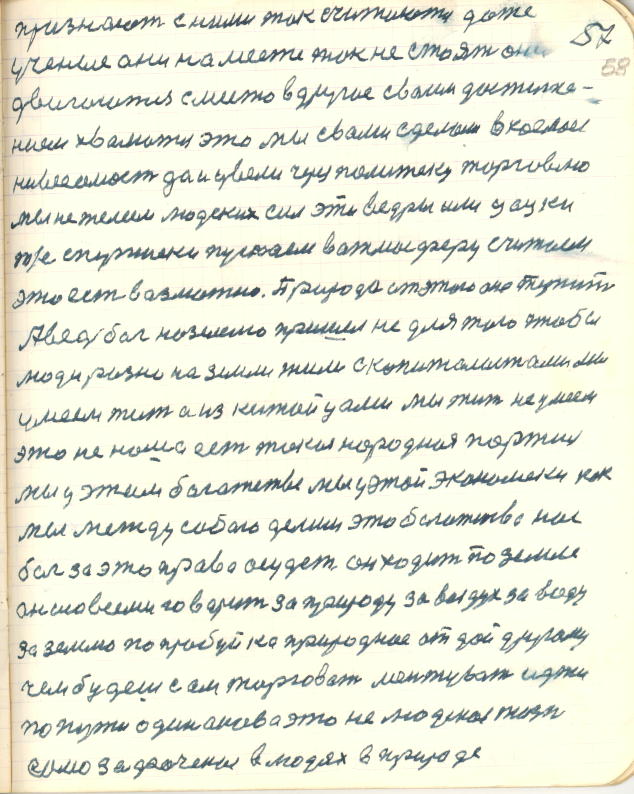 57
58
признают с ними так считают даже
учение они на месте так не стоят они
двигаются с место в другое своим достиже-
нием хвалятся это мы свами сделали в космос
невесомость да и цвели через политеку торговлю
мы не жалеем людских сил эти ведры или
же спутники пускаем в атмосферу считаем
это ест возможно. Природа от этого
А вед бог на землю пришел не для того чтобы
люди разно на земли жили с копиталистами мы
умеем жит а из китайцами мы жит не умеем
это не наша ест такая народная партия
мы у этим богатстве мы у этой экономеки как
мы между собою делим это богатство нас
бог за это права осудет он ходит по земле
он со всеми говорит за природу за воздух за воду
за землю попробуй ка природное отдай другому
чем будеш сам торговат
по пути одинакова это не людская жизн
само в людях в природе